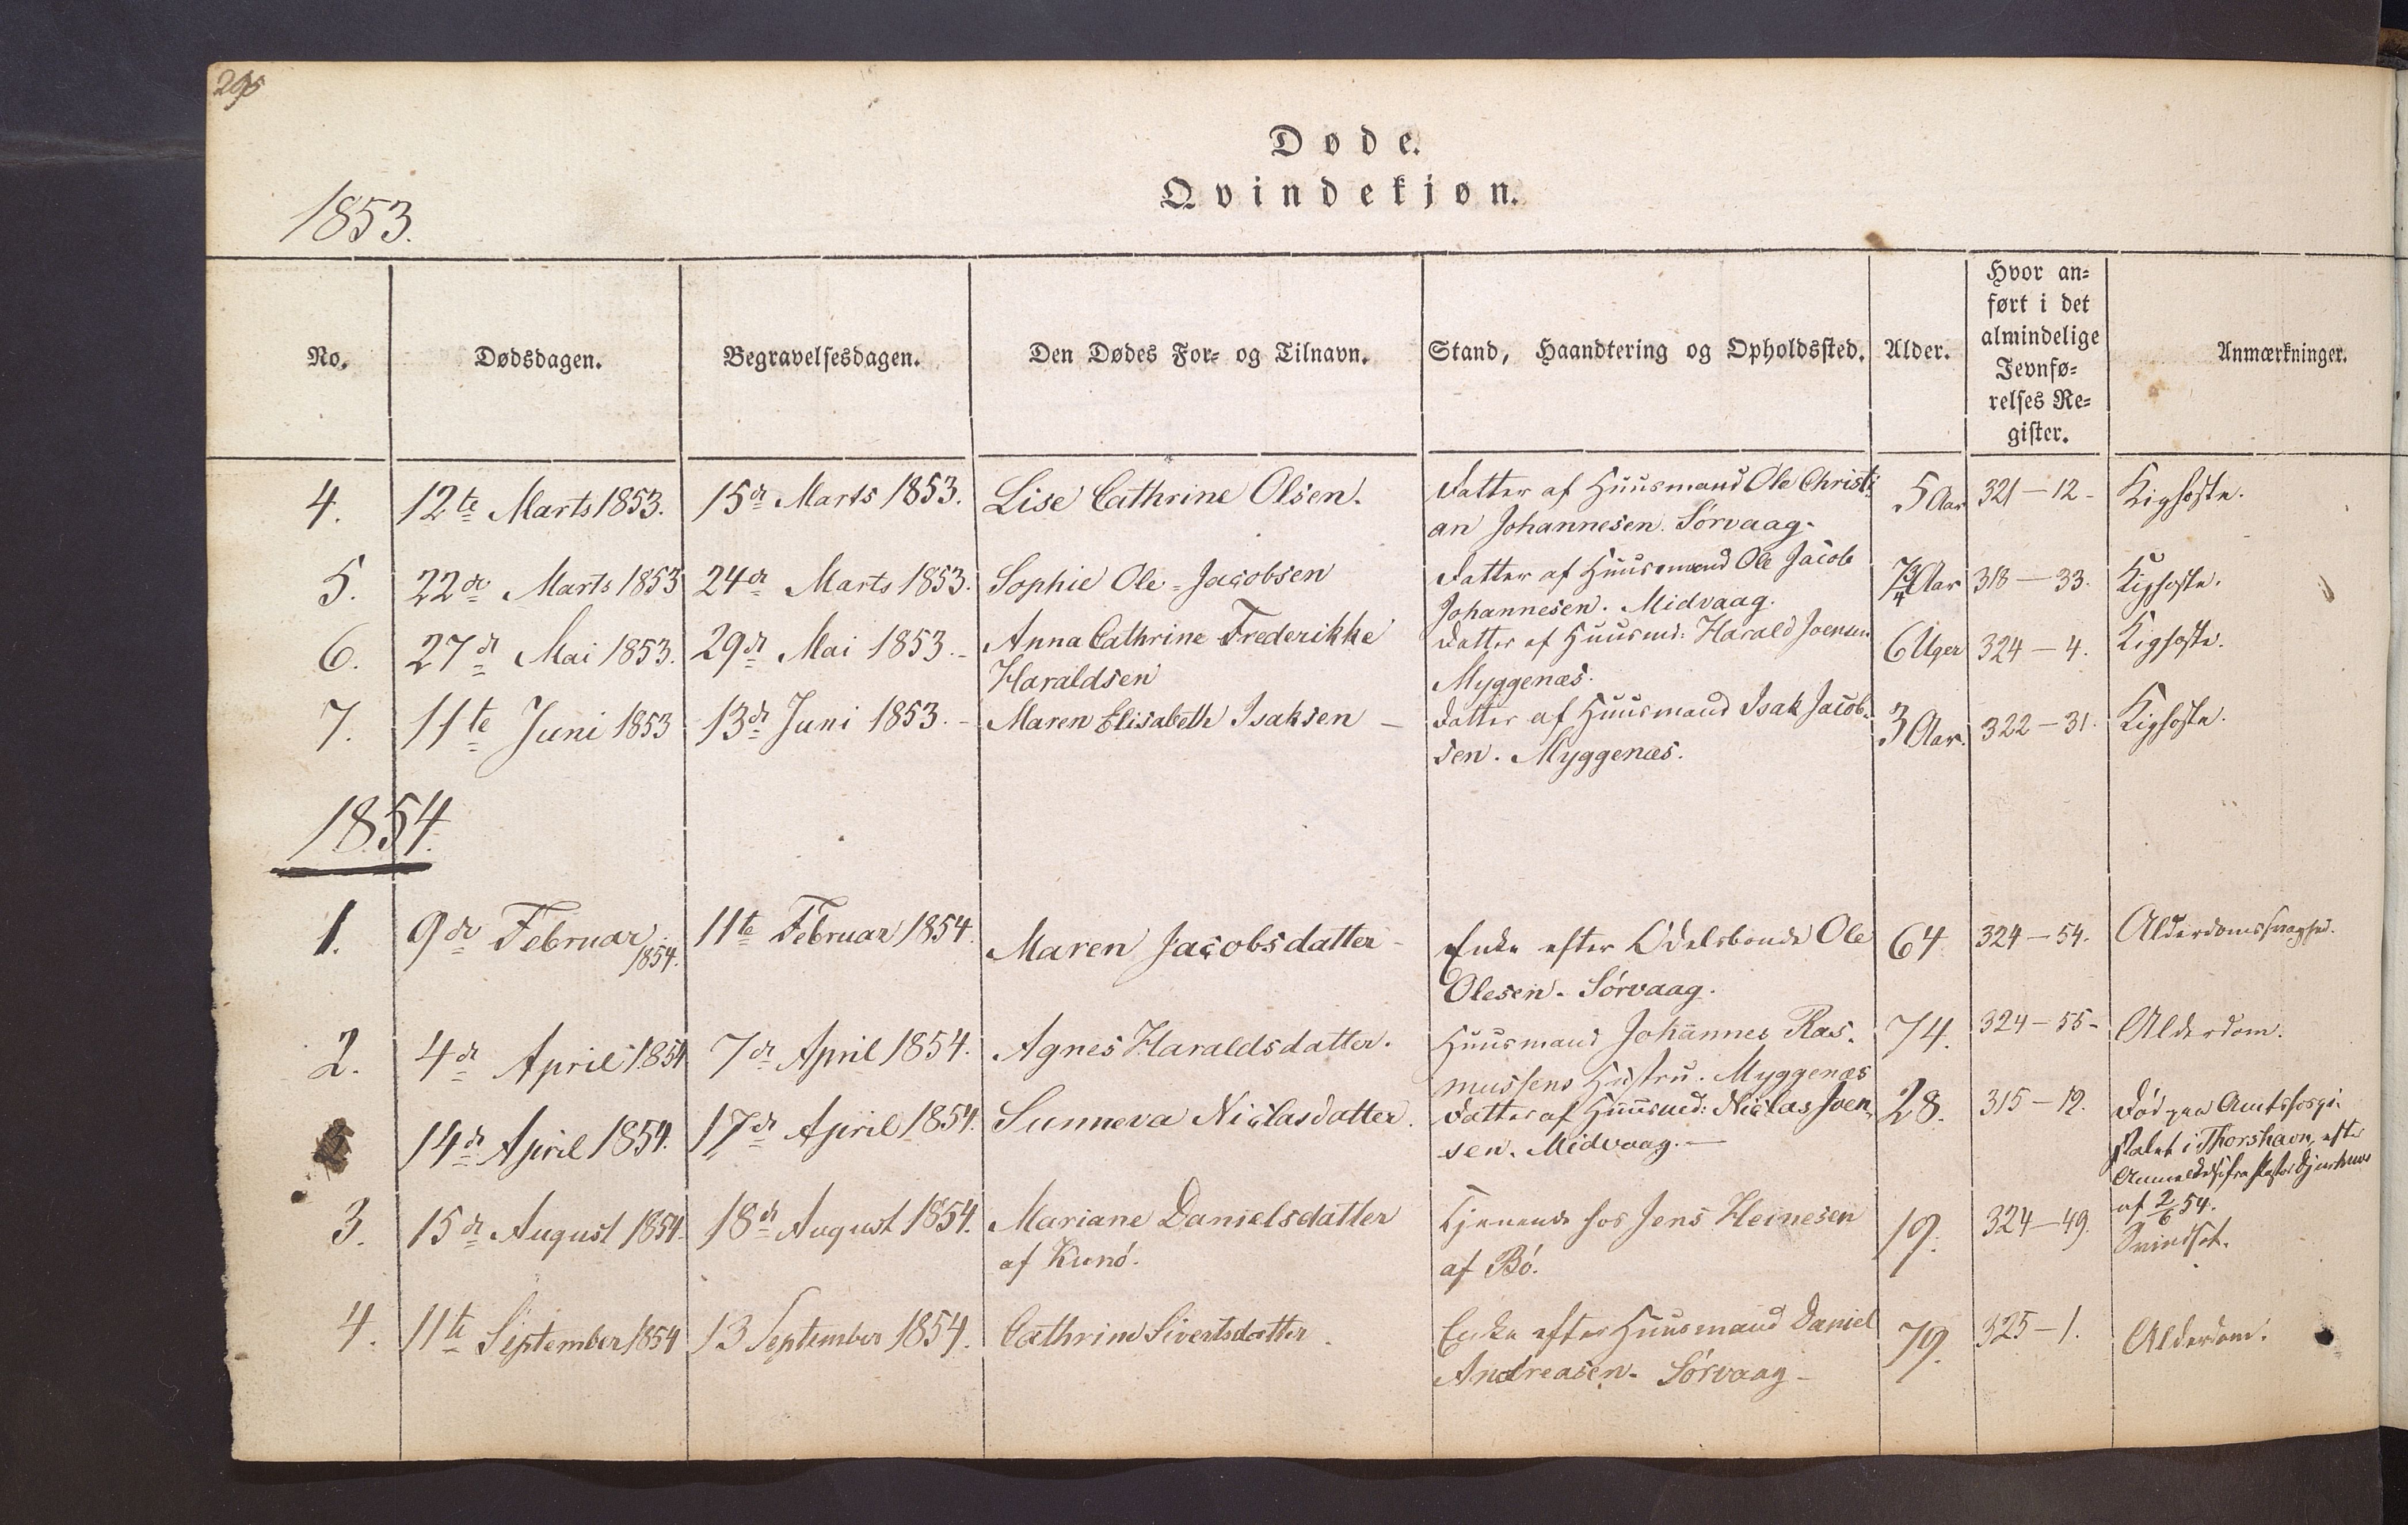 295
Døde.
Qvindekjøn.
1853.
No. Dødsdagen. Begravelsesdagen. Den Dødes For- og Tilnavn. Stand, Haandtering og Opholdssted. Alder. Hvor an-
ført i det
almindelige
Jevnfø-
relses Re-
gister. Anmærkninger.
4. 12te Marts 1853. 15de Marts 1853. Lise Cathrine Olsen. Datter af Huusmand Ole Christi- 5 Aar 321 — 12 - Kighoste.
an Johannesen. Sørvaag.
5. 22de Marts 1853 24de Marts 1853. Sophie Ole-Jacobsen Datter af Huusmand Ole Jacob 3/4 Aar 318 — 33. Kighoste.
Johannesen. Midvaag.
6. 27de Mai 1853. 29de Mai 1853. - Anna Cathrine Frederikke Datter af Huusmd: Harald Joensen 6 Uger 324 — 4. Kighoste.
Haraldsen Myggenæs.
7. 11te Juni 1853 13de Juni 1853. - Maren Elisabeth Isaksen — Datter af Huusmand Isak Jacob- 3 Aar. 322 — 31. Kighoste.
sen. Myggenæs.
1854.
1. 9de Februar 1854. 11te Februar 1854. Maren Jacobsdatter - Enke efter Odelsbonde Ole 64 324 — 54. Alderdomssvaghed.
Olesen. Sørvaag.
2. 4de April 1854 7de April 1854. Agnes Haraldsdatter. Huusmand Johannes Ras- 74. 324 — 55 - Alderdom.
mussens Hustru. Myggenæs
14de April 1854. 17de April 1854. Sunneva Niclasdatter. Datter af Huusmd: Niclas Joen- 28. 315 — 12. Død paa Amtshospi-
sen. Midvaag. — talet i Thorshavn, efter
Anmeldelse fra Pastor
af 2/6 54.
3. 15de August 1854. 18de August 1854. Mariane Danielsdatter Tjenende hos Jens Heinesen 19. 324 — 49. Svindsot.
af Kunø. af Bø.
4. 11te September 1854 13 September 1854. Cathrine Sivertsdatter. Enke efter Huusmand Daniel 79. 325 — 1. Alderdom.
Andreasen. Sørvaag -